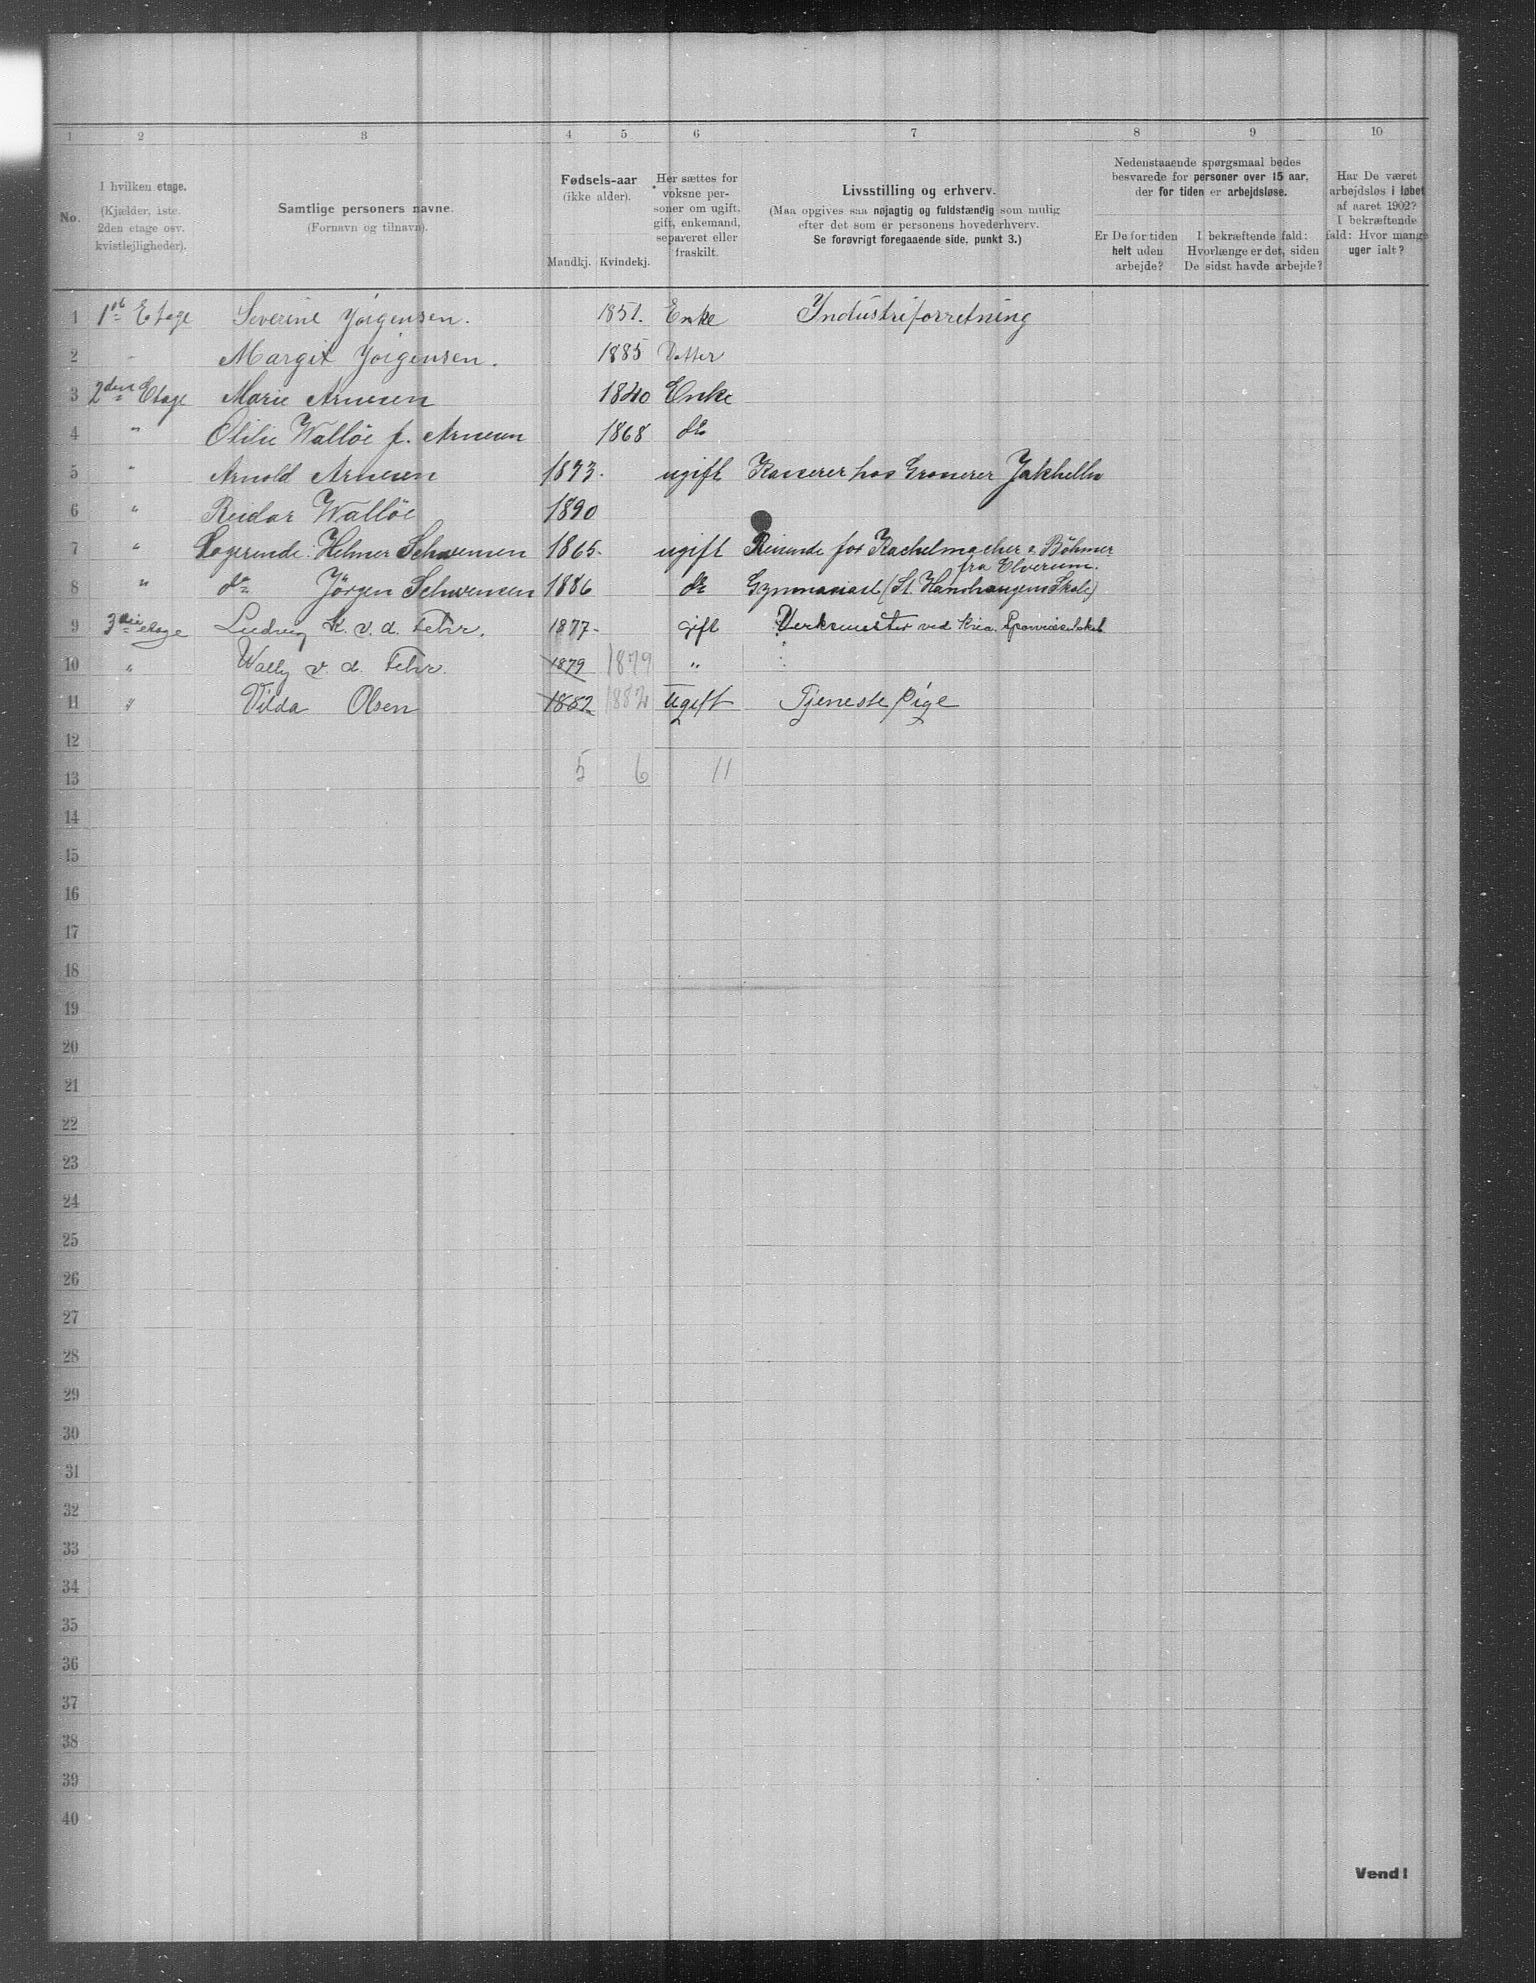 1 2 3 4 5 6 7 8 9 10
No.
I hvilken etage.
(Kjælder, 1ste.
2den etage osv.
kvistlejligheder).
Samtlige personers navne.
(Fornavn og tilnavn).
Fødsels-aar
(ikke alder).
Mandkj. Kvindekj.
Her sættes for
voksne per-
soner om ugift,
gift, enkemand,
separeret eller
fraskilt.
Livsstilling og erhverv.
(Maa opgives saa nøjagtig og fuldstændig som mulig
efter det som er personens hovederhverv.
Se forøvrigt foregaaende side, punkt 3.)
Nedenstaaende spørgsmaal bedes
besvarede for personer over 15 aar,
der for tiden er arbejdsløse.
Er De for tiden
helt uden
arbejde?
I bekræftende fald:
Hvorlænge er det, siden
De sidst havde arbejde?
Har De været
arbejdsløs i løbet
af aaret 1902?
I bekræftende
fald: Hvor mange
uger ialt?
1 1ste Etage Severine Jörgensen. 1851. Enke Industriforretning
2 " Margit Jörgensen. 1885 Datter
3 2den Etage Marie Arnesen 1840 Enke
4 " Otilie Walløe f. Arnesen 1868 do
5 " Arnold Arnesen 1873. ugift Kasserer hos Grosserer Jakhelln
6 " Reidar Walløe 1890
7 " Logerende. Helmer Schwensen 1865. ugift Reisende for Rachelmacher & Böhmer
fra Elverum.
8 " do Jörgen Schwensen 1886 do Gymnasiast (St. Hanshaugens Skole)
9 3die etage Ludvig K. v. d. Fehr. 1877- gift Verksmester ved Kria. Sporveiselskab
10 " Wally v. d. Fehr. 1879 1879 "
11 " Vilda Olsen 1882 1882 Ugift Tjeneste Pige
12
13 5 6 11
14
15
16
17
18
19
20
21
22
23
24
25
26
27
28
29
30
31
32
33
34
35
36
37
38
39
40
Vend!